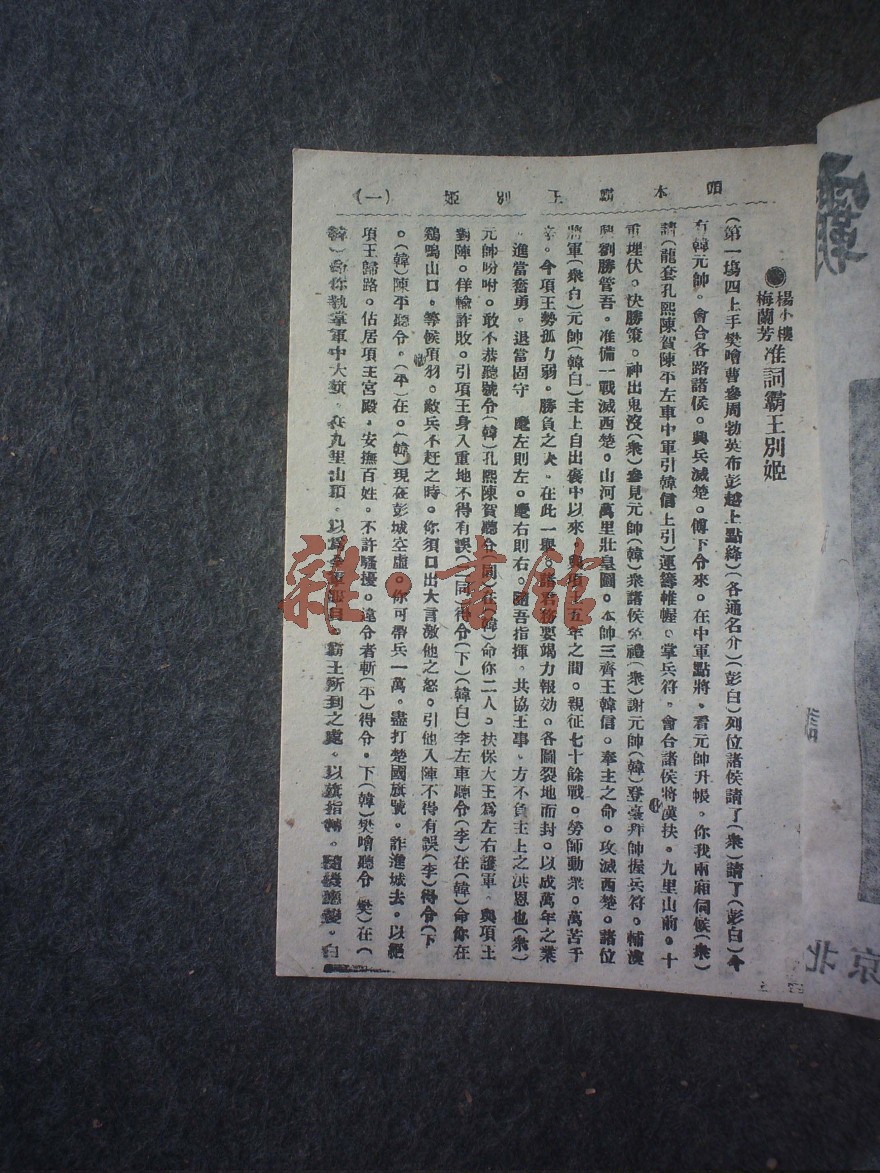 頭本霸王別姬 (一)
●楊小樓
梅蘭芳
准詞霸王別姬
(第一塲四上手樊噲曹參周勃英布彭越上點絳)(各通名介)(彭白)列位諸侯請了(衆)請了(彭白)今
有韓元帥。會合各路諸侯。興兵滅楚。傅下令來。在中軍點將。看元帥升帳。你我兩廂伺候(衆)
請(龍套孔熙陳賀陳平左車中軍引韓信上引)運籌帷幄。掌兵符。會合諸侯將漢扶。九里山前。十
重埋伏。快勝策。神出鬼沒(衆)參見元帥(韓)衆諸侯免禮(衆)謝元帥(韓)登臺拜帥握兵符。輔漢
興劉勝管吾。准備一戰滅西楚。山河萬里壯皇圖。本帥三齊王韓信。奉主之命。攻滅西楚。諸位
將軍(衆白)元帥(韓白)主上自出褒中以來。與項王五年之間。親征七十餘戰。勞師動衆。萬苦千
辛。今項王勢孤力弱。勝負之決。在此一舉。諸君務要竭力報効。各圖裂地而封。以成萬年之業
。進當奮勇。退當固守 麾左則左。麾右則右。隨吾指揮。共協王事。方不負主上之洪恩也(衆)
元帥吩咐。敢不恭聽號令(韓)孔熙陳賀聽令(同)在(韓)命你二人。扶保大王爲左右護軍。與項王
對陣。佯輸詐敗。引項王身入重地不得有誤(二同)得令(下)(韓白)李左車聽令(李)在(韓)命你在
鷄鳴山口。等候項羽。敵兵不赶之時。你須口出大言激他之怒。引他入陣不得有誤(李)得令(下
。(韓)陳平聽令。(平)在。(韓)現在彭城空虛。你可帶兵一萬。盡打楚國旗號。詐進城去。以絕
項王歸路。佔居項王宮殿。安撫百姓。不許騷擾。違令者斬(平)得令。下(韓)樊噲聽令(樊)在(
韓)命你執掌軍中大纛。在九里山頭。以爲全軍耳目。霸王所到之處。以旗指揮。隨機應變。白
雜·書館
北京